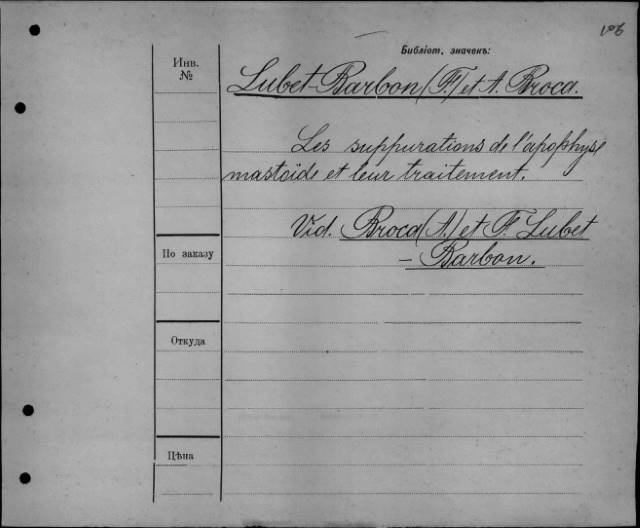 106
Библіот. значекъ:
Инв.
№
Lubet-Barbon (F.) et A. Broca.
Les suppurations de l'apophyse
mastoïde et leur traitement.
Vid. Broca (A.) et F. Lubet
- Barbon.
По заказу
Откуда
Цѣна